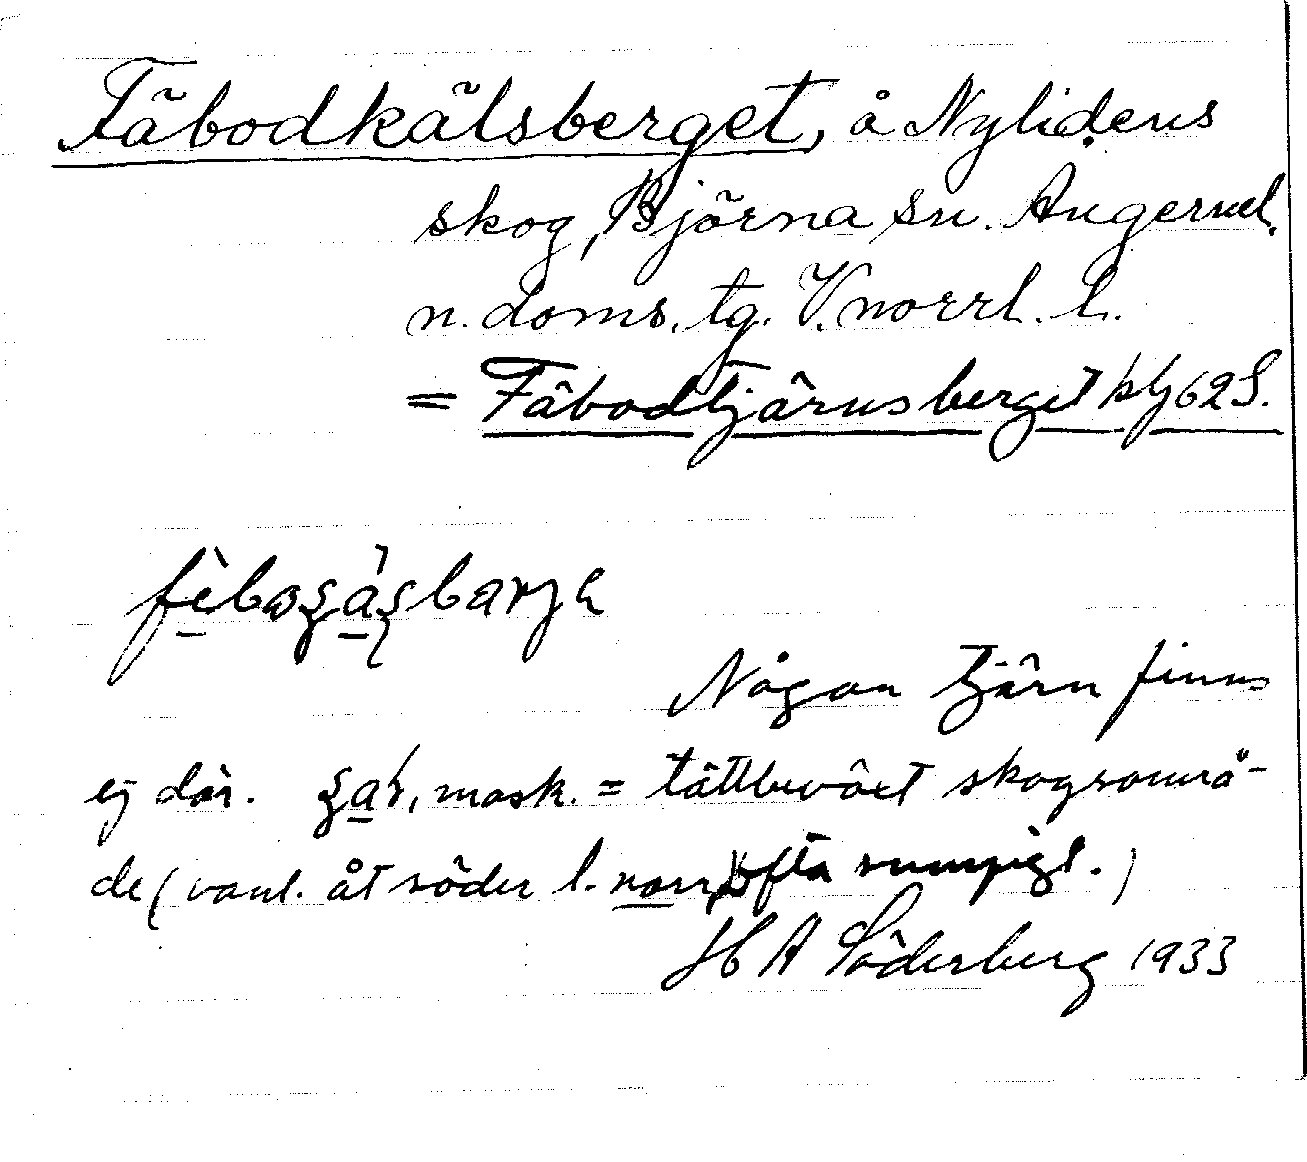 Fäbodkälsberget, å Nylidens
skog, Björna sn. Ångerml.
n. doms. tg. V.norrl. l.
= Fäbodtjärnsberget blj 62 S.
Någon tjärn finns
ej där. mask. = tättbeväxt skogsområ-
de (vanl. åt söder l. norr, ofta sumpigt.)
H A Söderberg 1933